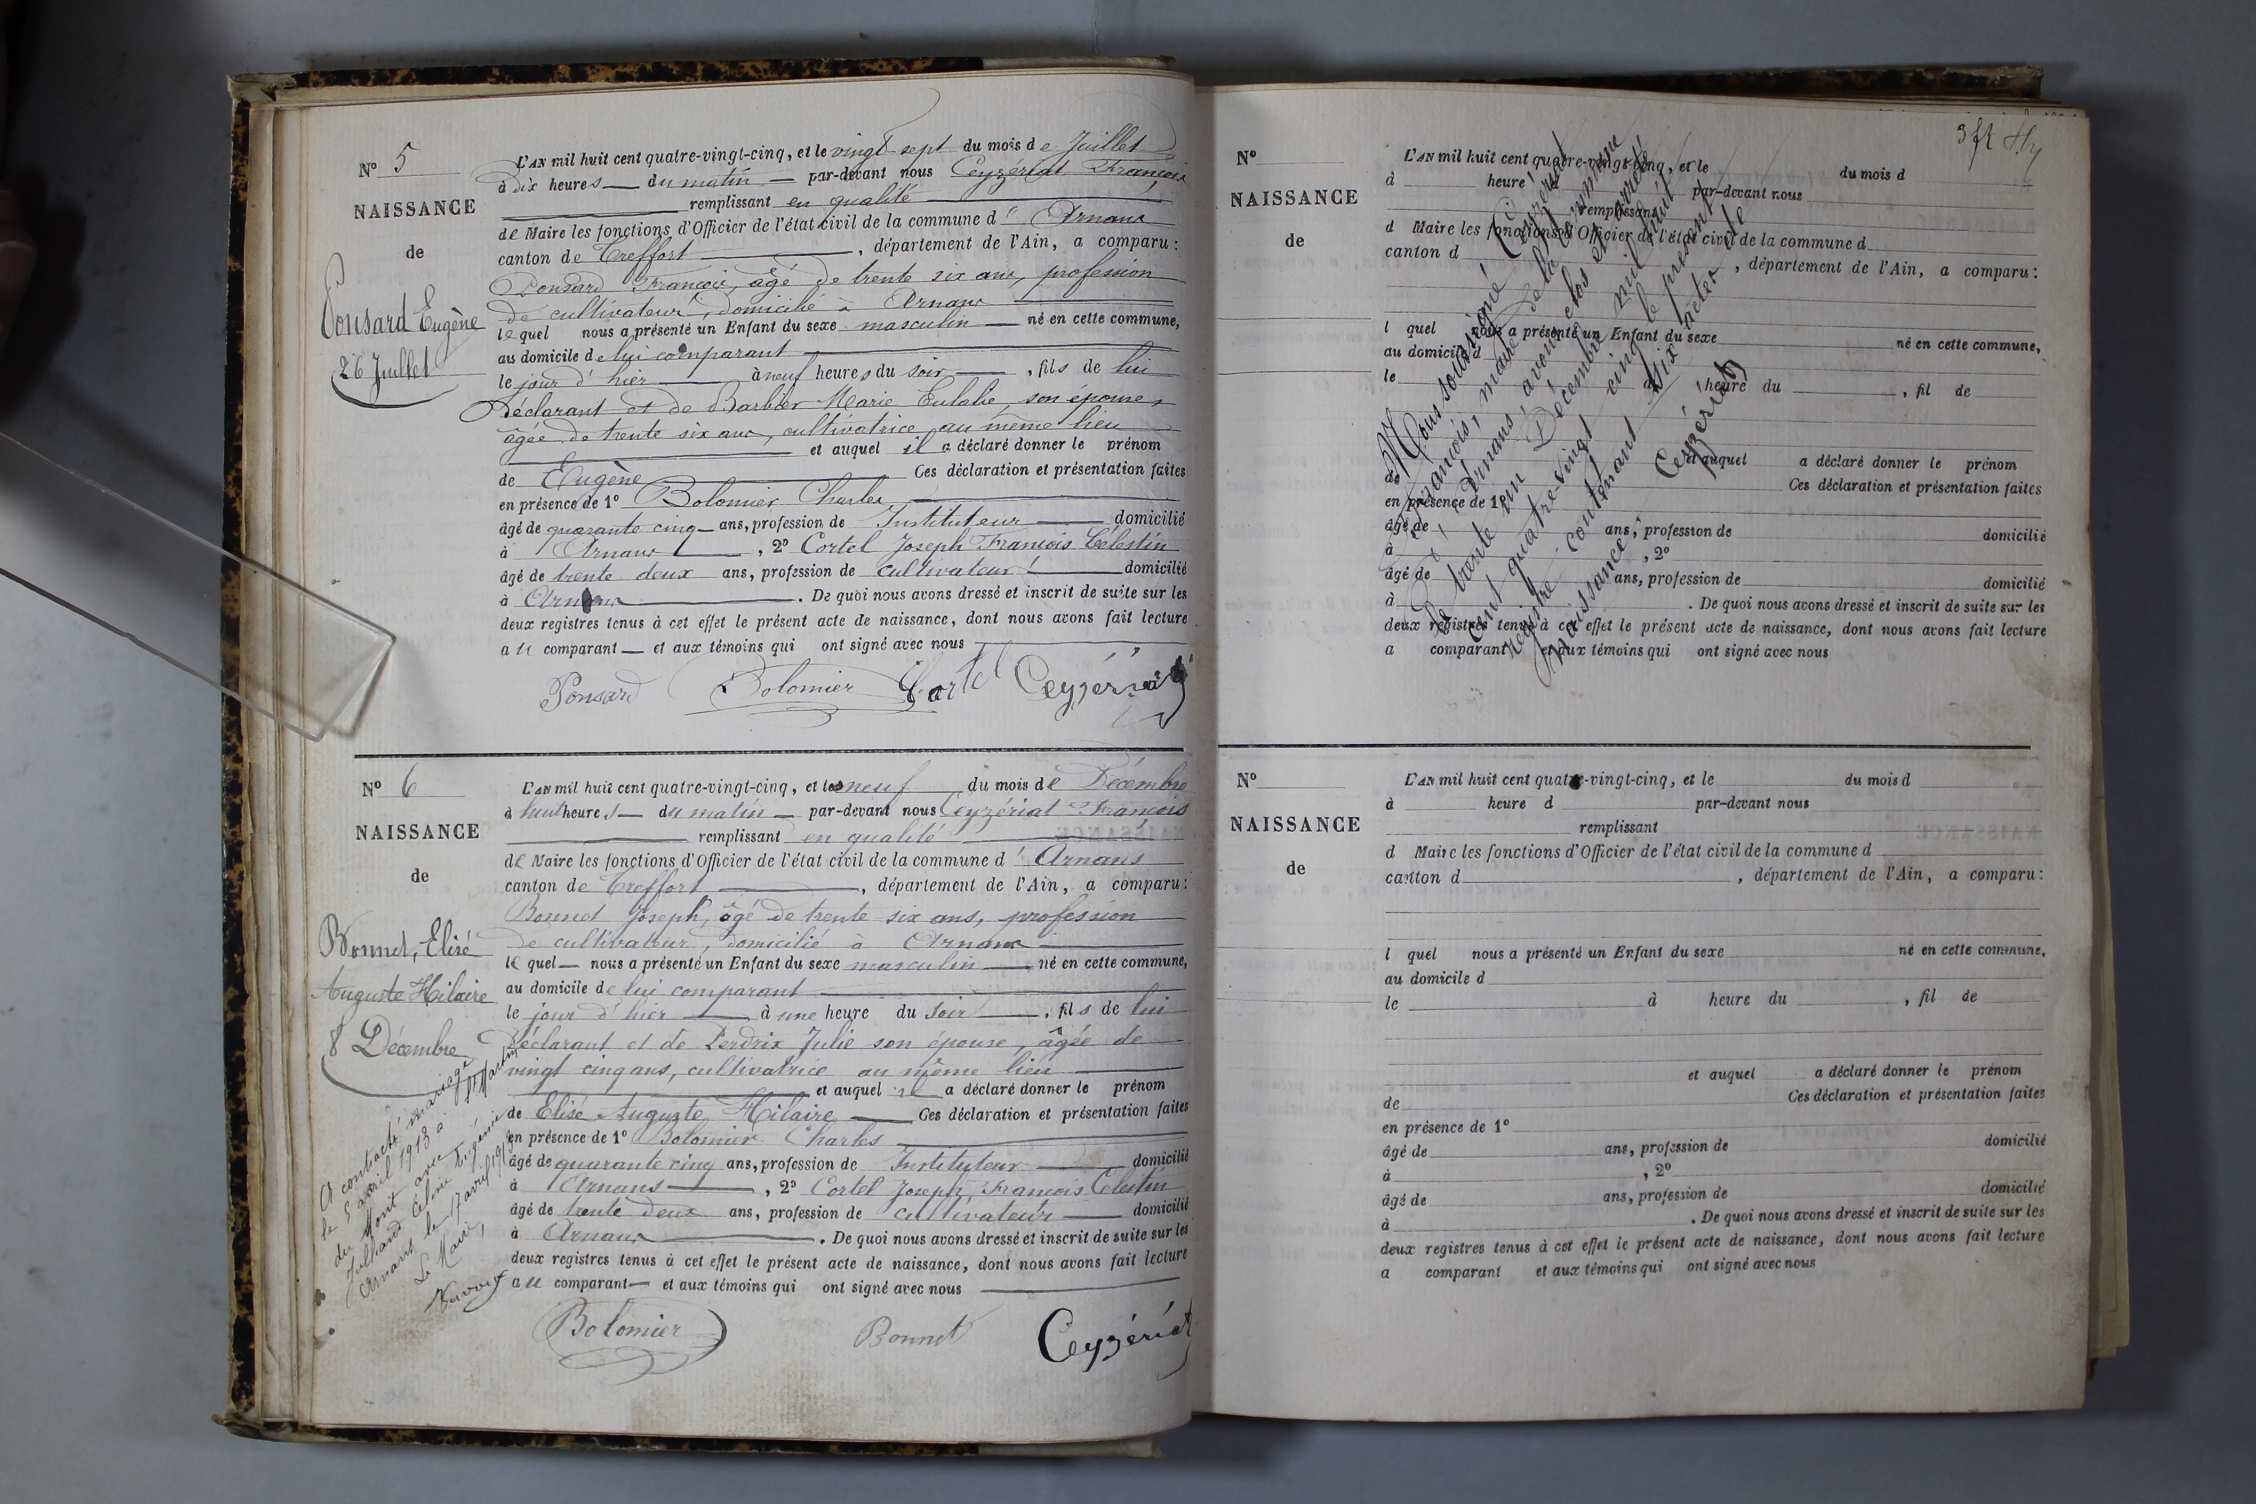 N° 5
NAISSANCE
de
Ponsard Eugène
26 Juillet
L'AN mil huit cent quatre-vingt-cinq, et le vingt sept du mois de Juillet
à dix heures du matin par-devant nous Ceyzériat François
remplissant en qualité
de Maire les fonctions d'Officier de l'état civil de la commune d'Arnans
canton de Treffort, département de l'Ain, a comparu :
Ponsard François, âgé de trente six ans, profession
de cultivateur, domicilié à Arnans
lequel nous a présenté un Enfant du sexe masculin né en cette commune,
au domicile de lui comparant
le jour d'hier à neuf heures du soir, fils de lui
déclarant et de Barbier Marie Eulalie, son épouse,
âgée de trente six ans, cultivatrice au même lieu
et auquel il a déclaré donner le prénom
de Eugène Ces déclaration et présentation faites
en présence de 1° Bolomier Charles
âgé de quarante cinq ans, profession de Instituteur domicilié
à Arnans, 2° Cortel Joseph François Célestin
âgé de trente deux ans, profession de cultivateur domicilié
à Arnans. De quoi nous avons dressé et inscrit de suite sur les
deux registres tenus à cet effet le présent acte de naissance, dont nous avons fait lecture
au comparant et aux témoins qui ont signé avec nous
Ponsard Bolomier Cortel Ceyzériat
N° 6
NAISSANCE
de
Bonnet, Elisé
Auguste Hilaire
8 Décembre
A contracté mariage
le 5 avril 1913 à St Martin
du Mont avec
Julliard Céline Eugénie
Arnans le 17 avril 1913
Le Maire,
L'AN mil huit cent quatre-vingt-cinq, et le neuf du mois de Décembre
à huit heures du matin par-devant nous Ceyzériat François
remplissant en qualité
de Maire les fonctions d'Officier de l'état civil de la commune d'Arnans
canton de Treffort, département de l'Ain, a comparu :
Bonnet Joseph, âgé de trente six ans, profession
de cultivateur, domicilié à Arnans
lequel nous a présenté un Enfant du sexe masculin né en cette commune,
au domicile de lui comparant
le jour d'hier à une heure du soir, fils de lui
déclarant et de Perdrix Julie son épouse, âgée de
vingt cinq ans, cultivatrice au même lieu
et auquel il a déclaré donner le prénom
de Elisé Auguste Hilaire Ces déclaration et présentation faites
en présence de 1° Bolomier Charles
âgé de quarante cinq ans, profession de Instituteur domicilié
à Arnans, 2° Cortel Joseph François Célestin
âgé de trente deux ans, profession de cultivateur domicilié
à Arnans. De quoi nous avons dressé et inscrit de suite sur les
deux registres tenus à cet effet le présent acte de naissance, dont nous avons fait lecture
au comparant et aux témoins qui ont signé avec nous
Bolomier Bonnet Ceyzériat
N°
NAISSANCE
de
L'AN mil huit cent quatre-vingt-cinq, et le du mois d
à heure d par-devant nous
remplissant
d Maire les fonctions d'Officier de l'état civil de la commune d
canton d , département de l'Ain, a comparu :
l quel nous a présenté un Enfant du sexe né en cette commune,
au domicile d
le à heure du , fil de
et auquel a déclaré donner le prénom
de Ces déclaration et présentation faites
en présence de 1°
âgé de ans, profession de domicilié
à , 2°
âgé de ans, profession de domicilié
à . De quoi nous avons dressé et inscrit de suite sur les
deux registres tenus à cet effet le présent acte de naissance, dont nous avons fait lecture
a comparant et aux témoins qui ont signé avec nous
Nous soussigné Ceyzériat
François, maire de la commune
d'Arnans, avons clos et arrêté
le trente un Décembre mil huit
cent quatre-vingt cinq le présent
registre contenant six actes de
Naissance.
Ceyzériat
N°
NAISSANCE
de
L'AN mil huit cent quatre-vingt-cinq, et le du mois d
à heure d par-devant nous
remplissant
d Maire les fonctions d'Officier de l'état civil de la commune d
canton d , département de l'Ain, a comparu :
l quel nous a présenté un Enfant du sexe né en cette commune,
au domicile d
le à heure du , fil de
et auquel a déclaré donner le prénom
de Ces déclaration et présentation faites
en présence de 1°
âgé de ans, profession de domicilié
à , 2°
âgé de ans, profession de domicilié
à . De quoi nous avons dressé et inscrit de suite sur les
deux registres tenus à cet effet le présent acte de naissance, dont nous avons fait lecture
a comparant et aux témoins qui ont signé avec nous